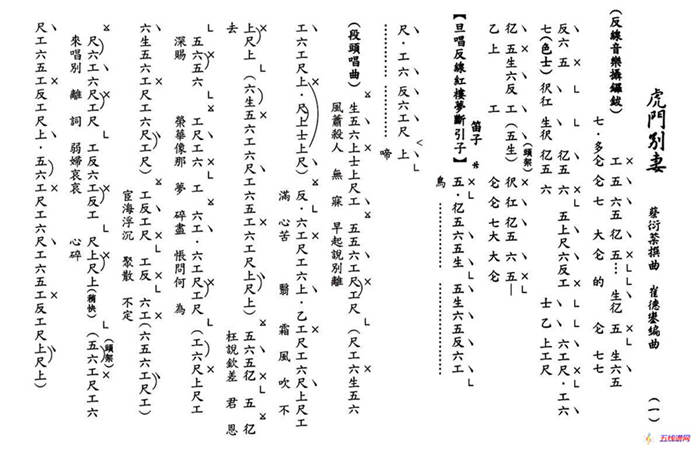 虎門別妻 蔡衍棻撰曲 崔德鑾編曲 (一)
(反線音樂攝鑼鼓)
工 五六五 伬五… 生伬五 生六五
七·多仑仑七大仑 的仑七七
反六五 伬五六 五上尺六反工 六工尺·工六
七(色士)伬仜 生伬 伬五六 士乙上工尺
伬五生六反工(五生)伬仜伬五 六五—
(頭架)
乙上 仑仑七大大仑
笛子
【旦唱反線紅樓夢斷引子】五·伬五六五生 五生六五反六工
鳥
尺·工六反六工尺上
啼
(段頭唱曲)生五六上士上尺工 五六工尺工尺(尺工六生五六
風蕭殺人無寐 早起說別離
工六工尺上·尺上士上尺)反·六工尺工六上·乙工尺工六尺上尺工
滿心苦 翳霜風吹不
上尺上(六生五六工六尺工五六工六工尺上尺上)五六五伬 五伬
去 枉說欽差君恩
五六五六 工尺工六工 六工·六工尺工尺(工六尺上尺工
深賜 榮華像那夢碎盡 悵問何為
六生五六工尺工六尺工尺)工反工尺 工反六工(六五六工尺工)
宦海浮沉 聚散不定
尺六工六工尺工尺 工反六工六反工 尺上尺上(稍快)(五六工尺工六
(頭架)
來唱別離詞 弱婦哀哀 心碎
尺工六五工反工尺上·五六工尺工六尺工六五工反工尺上尺上)
五线谱网